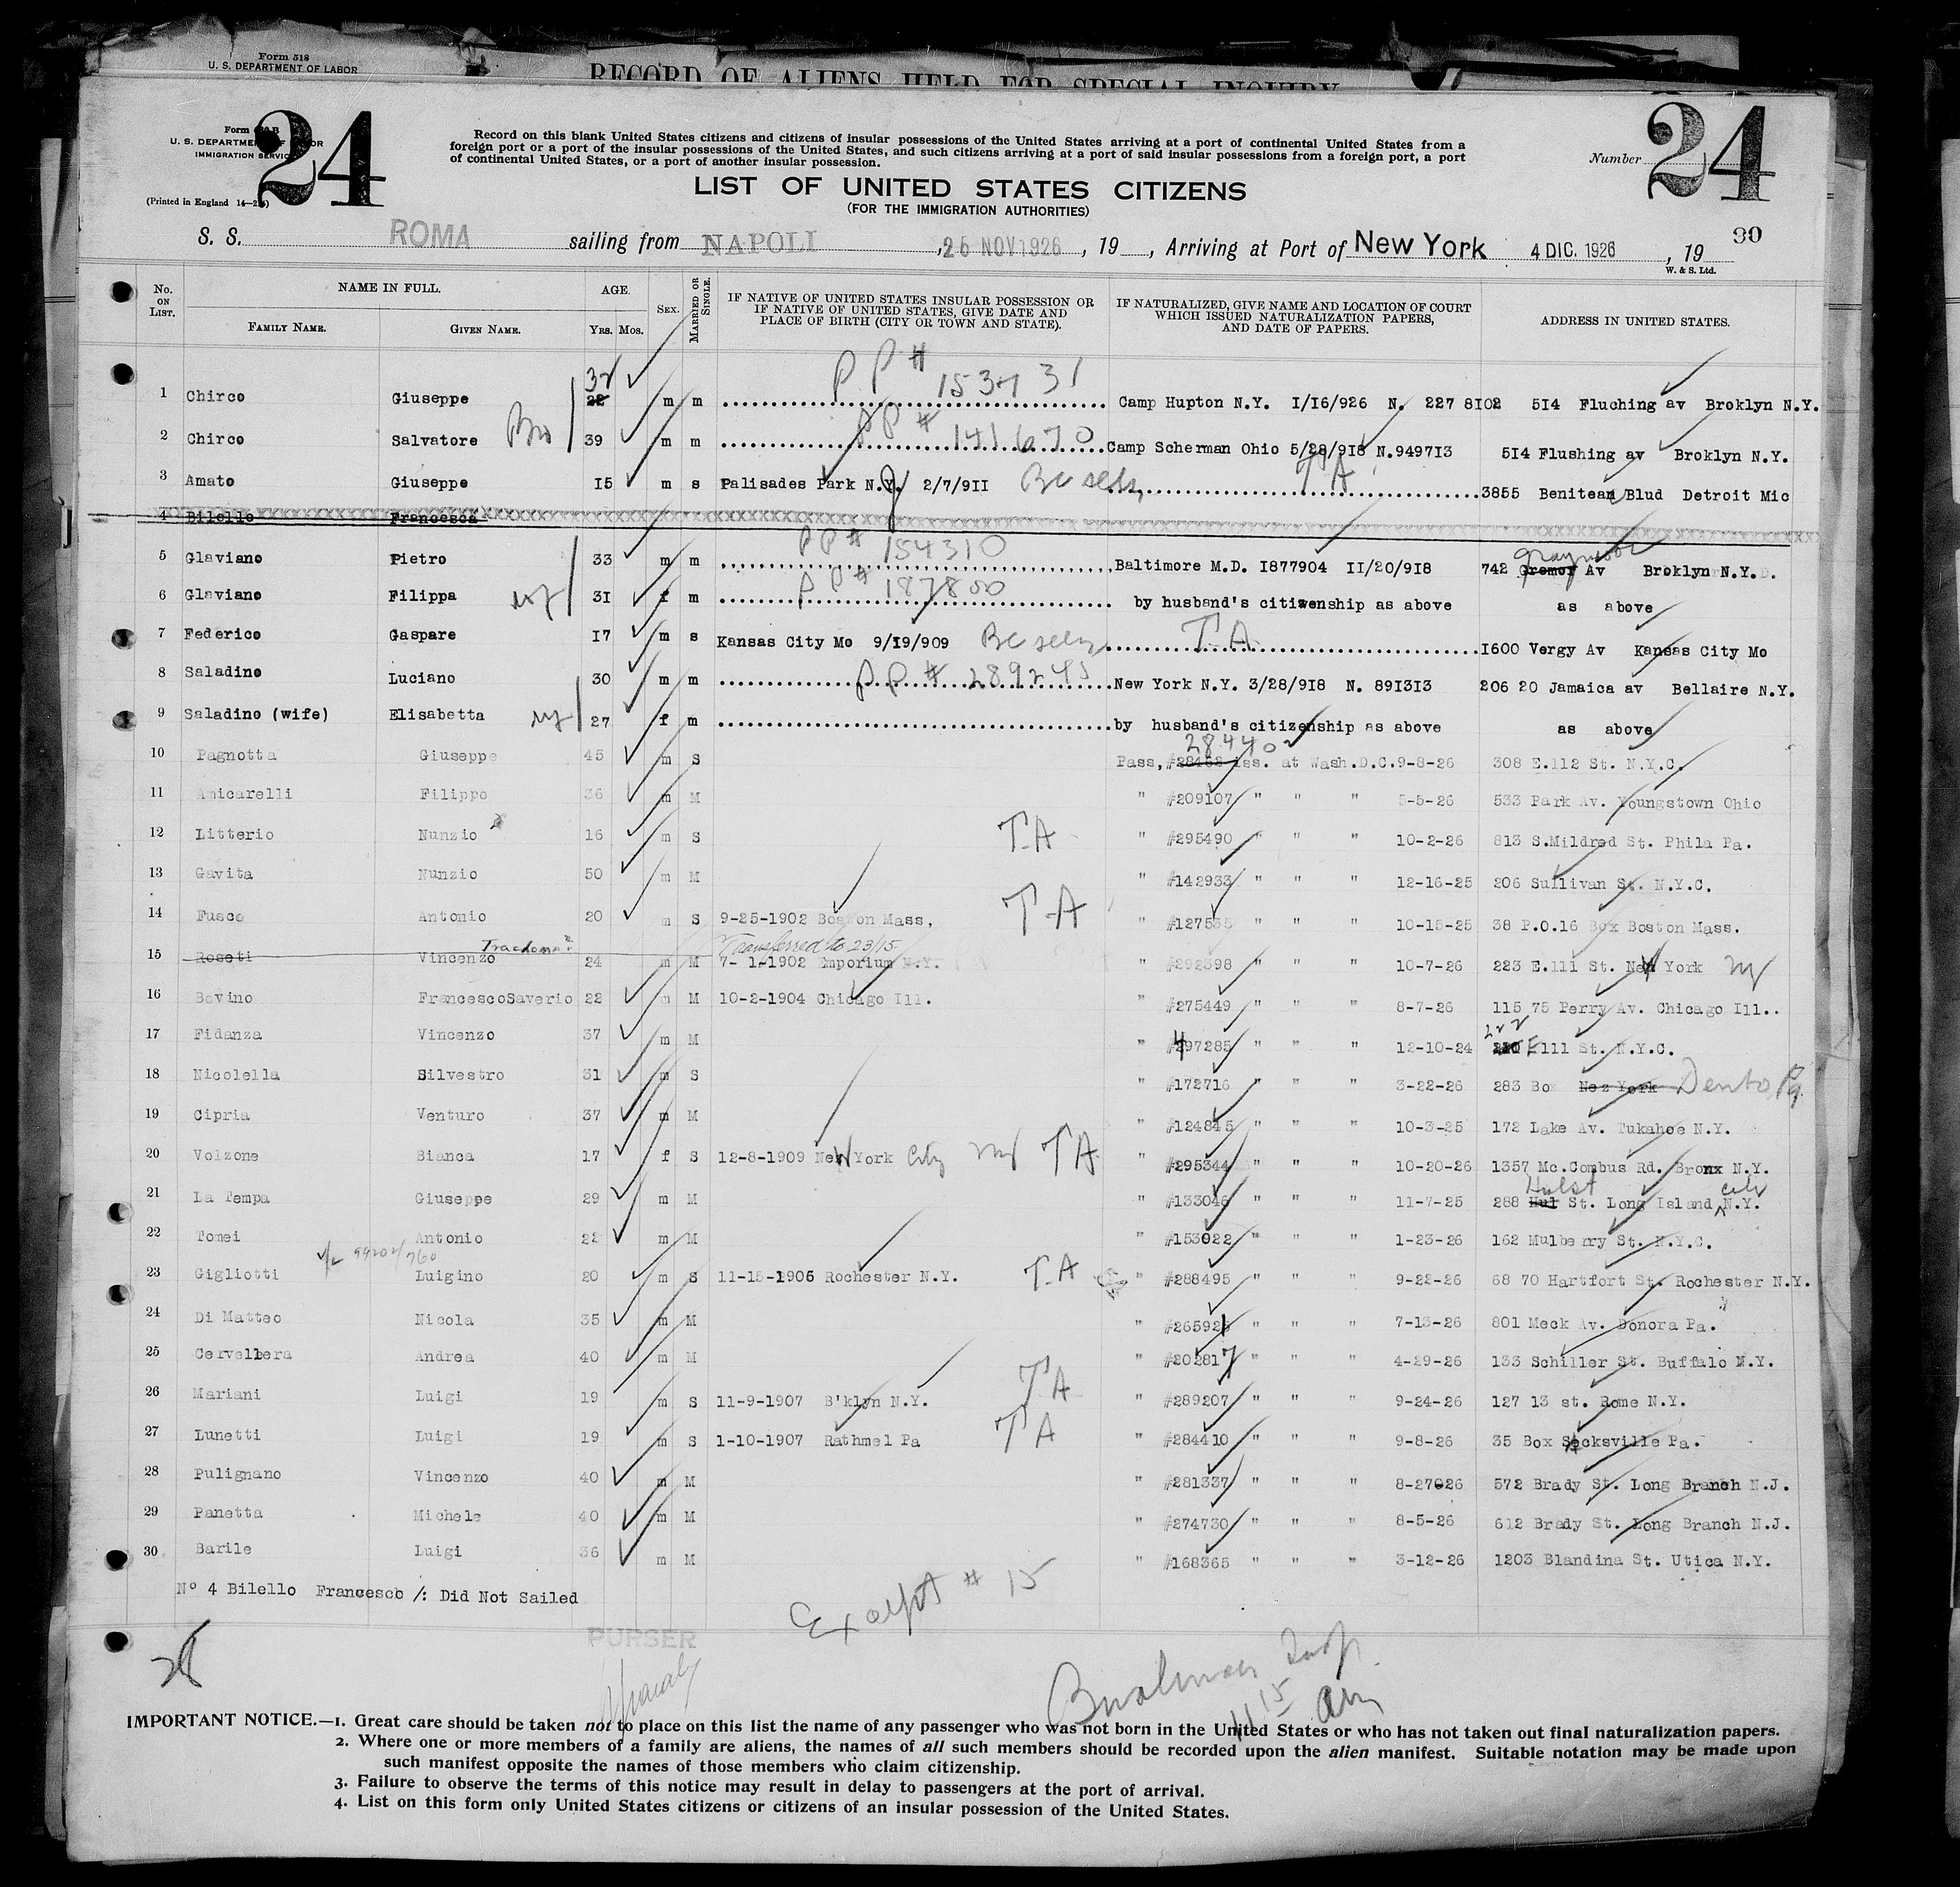 Form 518
U. S. DEPARTMENT OF LABOR
RECORD OF ALIENS HELD FOR SPECIAL INQUIRY
24
24
Form B
U. S. DEPARTMENT OF LABOR
IMMIGRATION SERVICE
(Printed in England 14—2
Record on this blank United States citizens and citizens of insular possessions of the United States arriving at a port of continental United States from a
foreign port or a port of the insular possessions of the United States, and such citizens arriving at a port of said insular possessions from a foreign port, a port
of continental United States, or a port of another insular possession.
Number
LIST OF UNITED STATES CITIZENS
(FOR THE IMMIGRATION AUTHORITIES)
30
S. S. ROMA sailing from NAPOLI, 26 NOV 1926, 19 , Arriving at Port of New York 4 DIC. 1926, 19
W. & S. Ltd.
No. ON LIST. NAME IN FULL. FAMILY NAME. GIVEN NAME. AGE. YRS. MOS. SEX. MARRIED OR SINGLE. IF NATIVE OF UNITED STATES INSULAR POSSESSION OR IF NATIVE OF UNITED STATES, GIVE DATE AND PLACE OF BIRTH (CITY OR TOWN AND STATE). IF NATURALIZED, GIVE NAME AND LOCATION OF COURT WHICH ISSUED NATURALIZATION PAPERS, AND DATE OF PAPERS. ADDRESS IN UNITED STATES.
1 Chirco Giuseppe 32 22 m m PP# 153731 Camp Hupton N.Y. I/I6/926 N. 227 8I02 5I4 Fluching av Broklyn N.Y.
2 Chirco Salvatore Bro 39 m m PP# 141670 Camp Scherman Ohio 5/28/9I8 N.9497I3 5I4 Flushing av Broklyn N.Y.
3 Amato Giuseppe I5 m s Palisades Park N.Y. 2/7/9II BC seen TA 3855 Benitean Blud Detroit Mic
4 Bilello Francesca
5 Glaviano Pietro 33 m m PP# 154310 Baltimore M.D. I877904 II/20/9I8 742 Gremor Av Broklyn N.Y.
6 Glaviano Filippa wf 3I f m PP# 187800 by husband's citiwenship as above as above
7 Federico Gaspare I7 m s Kansas City Mo 9/I9/909 BC seen TA I600 Vergy Av Kansas City Mo
8 Saladino Luciano 30 m m PP# 289245 New York N.Y. 3/28/9I8 N. 89I3I3 206 20 Jamaica av Bellaire N.Y.
9 Saladino (wife) Elisabetta wf 27 f m by husband's citizenship as above as above
10 Pagnotta Giuseppe 45 m S 28440 Pass, iss. at Wash.D.C.9-8-26 308 E.112 St. N.Y.C.
11 Amicarelli Filippo 36 m M " #209107 " " " 5-5-26 533 Park Av. Youngstown Ohio
12 Litterio Nunzio 16 m S TA " #295490 " " " 10-2-26 813 S.Mildred St. Phila Pa.
13 Gavita Nunzio 50 m M " #142933 " " " 12-16-25 206 Sullivan St. N.Y.C.
14 Fusco Antonio 20 m S 9-25-1902 Boston Mass, TA " #127535 " " " 10-15-25 38 P.O.16 Box Boston Mass.
15 Roseti Trachoma? Vincenzo 24 m M Transferred to 23/15 7- 1-1902 Emporium N.Y. " #292398 " " " 10-7-26 223 E.111 St. New York
16 Bovino FrancescoSaverio 22 m M 10-2-1904 Chicago Ill. " #275449 " " " 8-7-26 115 75 Perry Av. Chicago Ill..
17 Fidanza Vincenzo 37 m M " #497285 " " " 12-10-24 222 E 111 St. N.Y.C.
18 Nicolella Silvestro 31 m S " #172716 " " " 3-22-26 283 Bo Nez York Dento, Pa.
19 Cipria Venturo 37 m M " #124845 " " " 10-3-25 172 Lake Av. Tukahoe N.Y.
20 Volzone Bianca 17 f S 12-8-1909 New York City NY TA " #295344 " " " 10-20-26 1357 Mc.Combus Rd. Bronx N.Y.
21 La Tempa Giuseppe 29 m M " #133046 " " " 11-7-25 288 Hul Hulst St. Long Island City N.Y.
22 Tomei Antonio 28 m M " #153022 " " " 1-23-26 162 Mulberry St. N.Y.C.
23 Gigliotti Luigino 20 m S 11-15-1906 Rochester N.Y. TA " #288495 " " " 9-22-26 68 70 Hartfort St. Rochester N.Y.
24 Di Matteo Nicola 35 m M " #265921 " " " 7-13-26 801 Meck Av. Donora Pa.
25 Cervellera Andrea 40 m M " #202817 " " " 4-29-26 133 Schiller St. Buffalo N.Y.
26 Mariani Luigi 19 m S 11-9-1907 B'klyn N.Y. TA " #289207 " " " 9-24-26 127 13 st. Rome N.Y.
27 Lunetti Luigi 19 m S 1-10-1907 Rathmel Pa TA " #284410 " " " 9-8-26 35 Box Socksville Pa.
28 Pulignano Vincenzo 40 m M " #281337 " " " 8-27026 572 Brady St. Long Branch N.J.
29 Panetta Michele 40 m M " #274730 " " " 8-5-26 612 Brady St. Long Branch N.J.
30 Barile Luigi 36 m M " #168365 " " " 3-12-26 1203 Blandina St. Utica N.Y.
Nº 4 Bilello Francesco /: Did Not Sailed
Except # 15
PURSER
Insp.
11 15 am
IMPORTANT NOTICE.—1. Great care should be taken not to place on this list the name of any passenger who was not born in the United States or who has not taken out final naturalization papers.
2. Where one or more members of a family are aliens, the names of all such members should be recorded upon the alien manifest. Suitable notation may be made upon
such manifest opposite the names of those members who claim citizenship.
3. Failure to observe the terms of this notice may result in delay to passengers at the port of arrival.
4. List on this form only United States citizens or citizens of an insular possession of the United States.